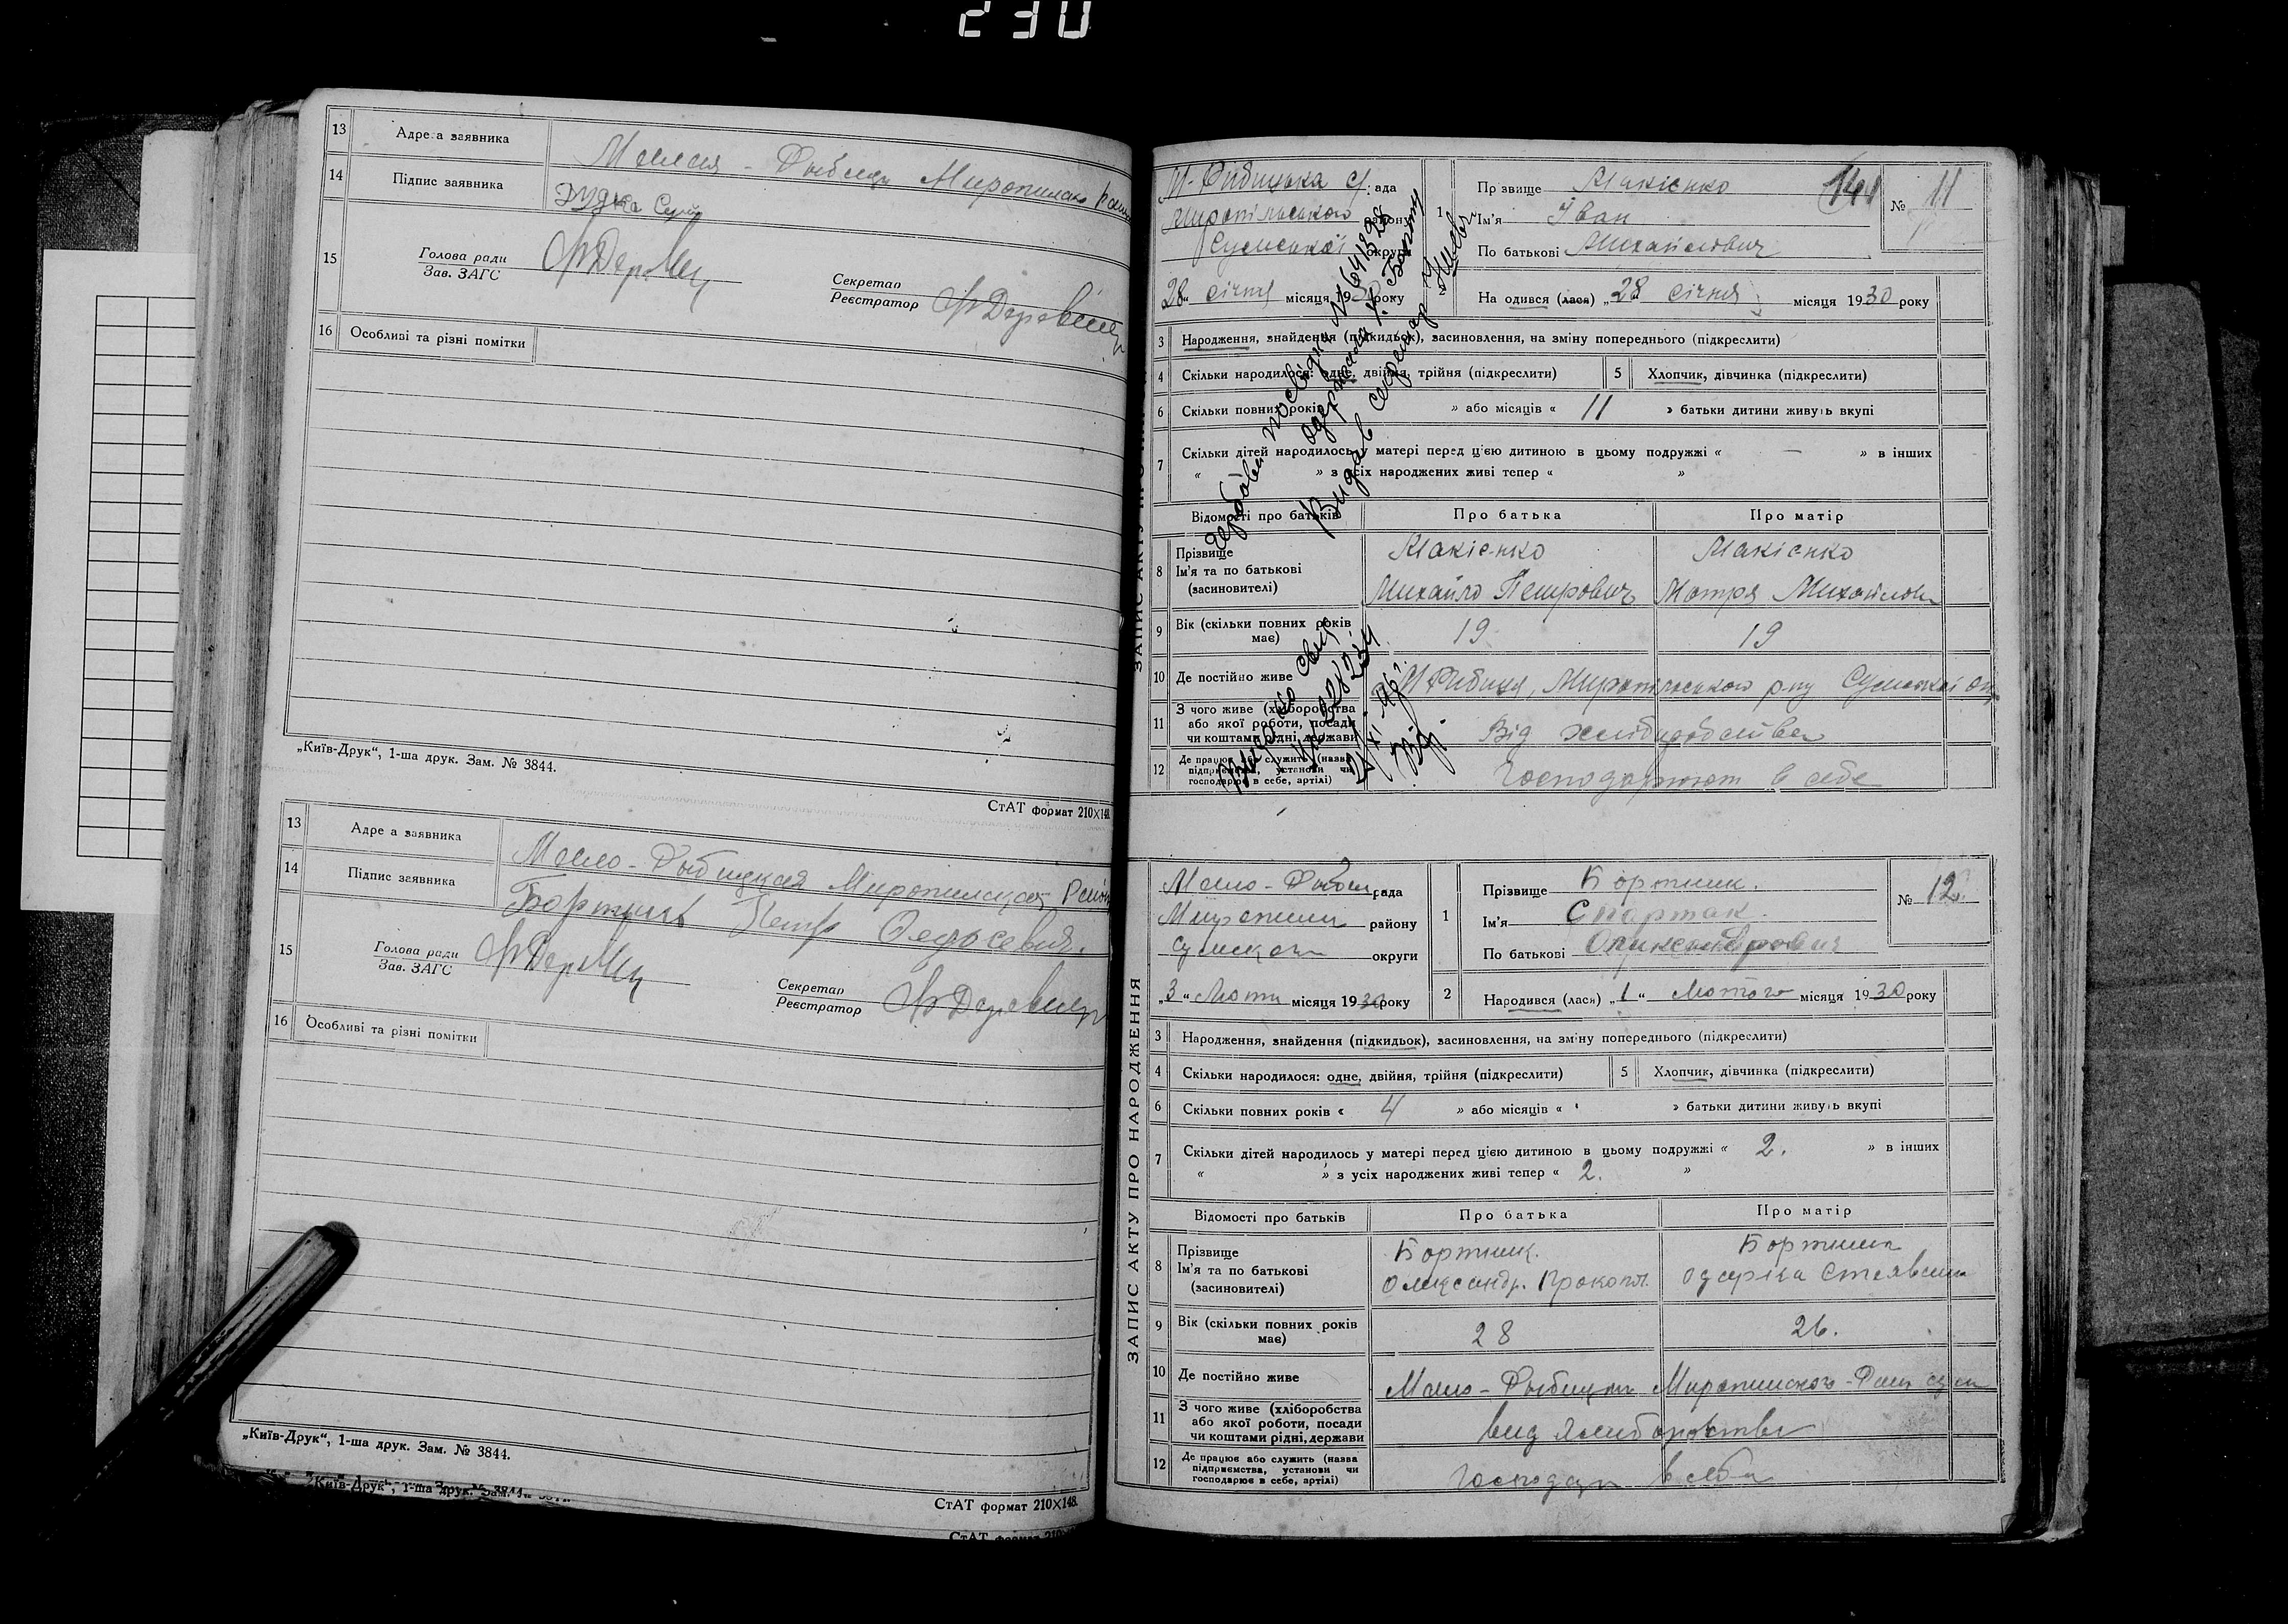 230
13 Адреса заявника Малая - Рыбица Миропильско Район
14 Підпис заявника
15 Голова ради
Зав. ЗАГС
Секретар
Реєстратор
16 Особливі та різні помітки
„Київ-Друк“, 1-ша друк. Зам. № 3844.
СтАТ формат 210×148.
13 Адреса заявника Мало-Рыбицкая Миропильскаг Район
14 Підпис заявника Бортник Петр
15 Голова ради
Зав. ЗАГС
Секретар
Реєстратор
16 Особливі та різні помітки
„Київ-Друк“, 1-ша друк. Зам. № 3844.
СтАТ формат 210×148.
„Київ-Друк“, 1-ша друк. Зам. № 3844.
М-Рибицька с/рада
Миропільського району
Сумської округи
„28“ січня місяця 1930 року
1 Прізвище Макієнко
Ім'я Іван
По батькові Михайлович
141
№ 11
2 Народився (лася) „28 січня місяця 1930 року
3 Народження, знайдення (підкидьок), засиновлення, на зміну попереднього (підкреслити)
4 Скільки народилося: одне, двійня, трійня (підкреслити) 5 Хлопчик, дівчинка (підкреслити)
6 Скільки повних років » або місяців « 11 » батьки дитини живуть вкупі
7 Скільки дітей народилось у матері перед цією дитиною в цьому подружжі « — » в інших
« » з усіх народжених живі тепер « »
Відомості про батьків Про батька Про матір
8 Прізвище Макієнко Макієнко
Ім'я та по батькові Михайло Петрович Мотря Михайловн
(засиновителі)
9 Вік (скільки повних років має) 19 19
10 Де постійно живе М Рибиця, Миропільського р-ну Сумської ок
11 З чого живе (хліборобства
або якої роботи, посади
чи коштами рідні, держави Від хліборобства
12 Де працює або служить (назва
підприємства, установи чи
господарює в себе, артілі) Господарюют в себе
Видав секретар
ЗАПИС АКТУ ПРО НАРОДЖЕННЯ
Мало-Рыбиц рада
Миропил району
Сумской округи
„3“ Люти місяця 1930 року
1 Прізвище Бортник.
Ім'я Спартак.
По батькові Олександрович
№ 12.
2 Народився (лася) „1“ Лютого місяця 1930 року
3 Народження, знайдення (підкидьок), засиновлення, на зміну попереднього (підкреслити)
4 Скільки народилося: одне, двійня, трійня (підкреслити) 5 Хлопчик, дівчинка (підкреслити)
6 Скільки повних років « 4 » або місяців « » батьки дитини живуть вкупі
7 Скільки дітей народилось у матері перед цією дитиною в цьому подружжі « 2. » в інших
« » з усіх народжених живі тепер « 2. »
Відомості про батьків Про батька Про матір
8 Прізвище Бортник. Бортник
Ім'я та по батькові Олександр. Прокоп. Одарка
(засиновителі)
9 Вік (скільки повних років має) 28 26.
10 Де постійно живе Мало-Рыбицы Миропильского-Рай Сум
11 З чого живе (хліборобства
або якої роботи, посади
чи коштами рідні, держави вид хлиборобства
12 Де працює або служить (назва
підприємства, установи чи
господарює в себе, артілі) Господар в себе